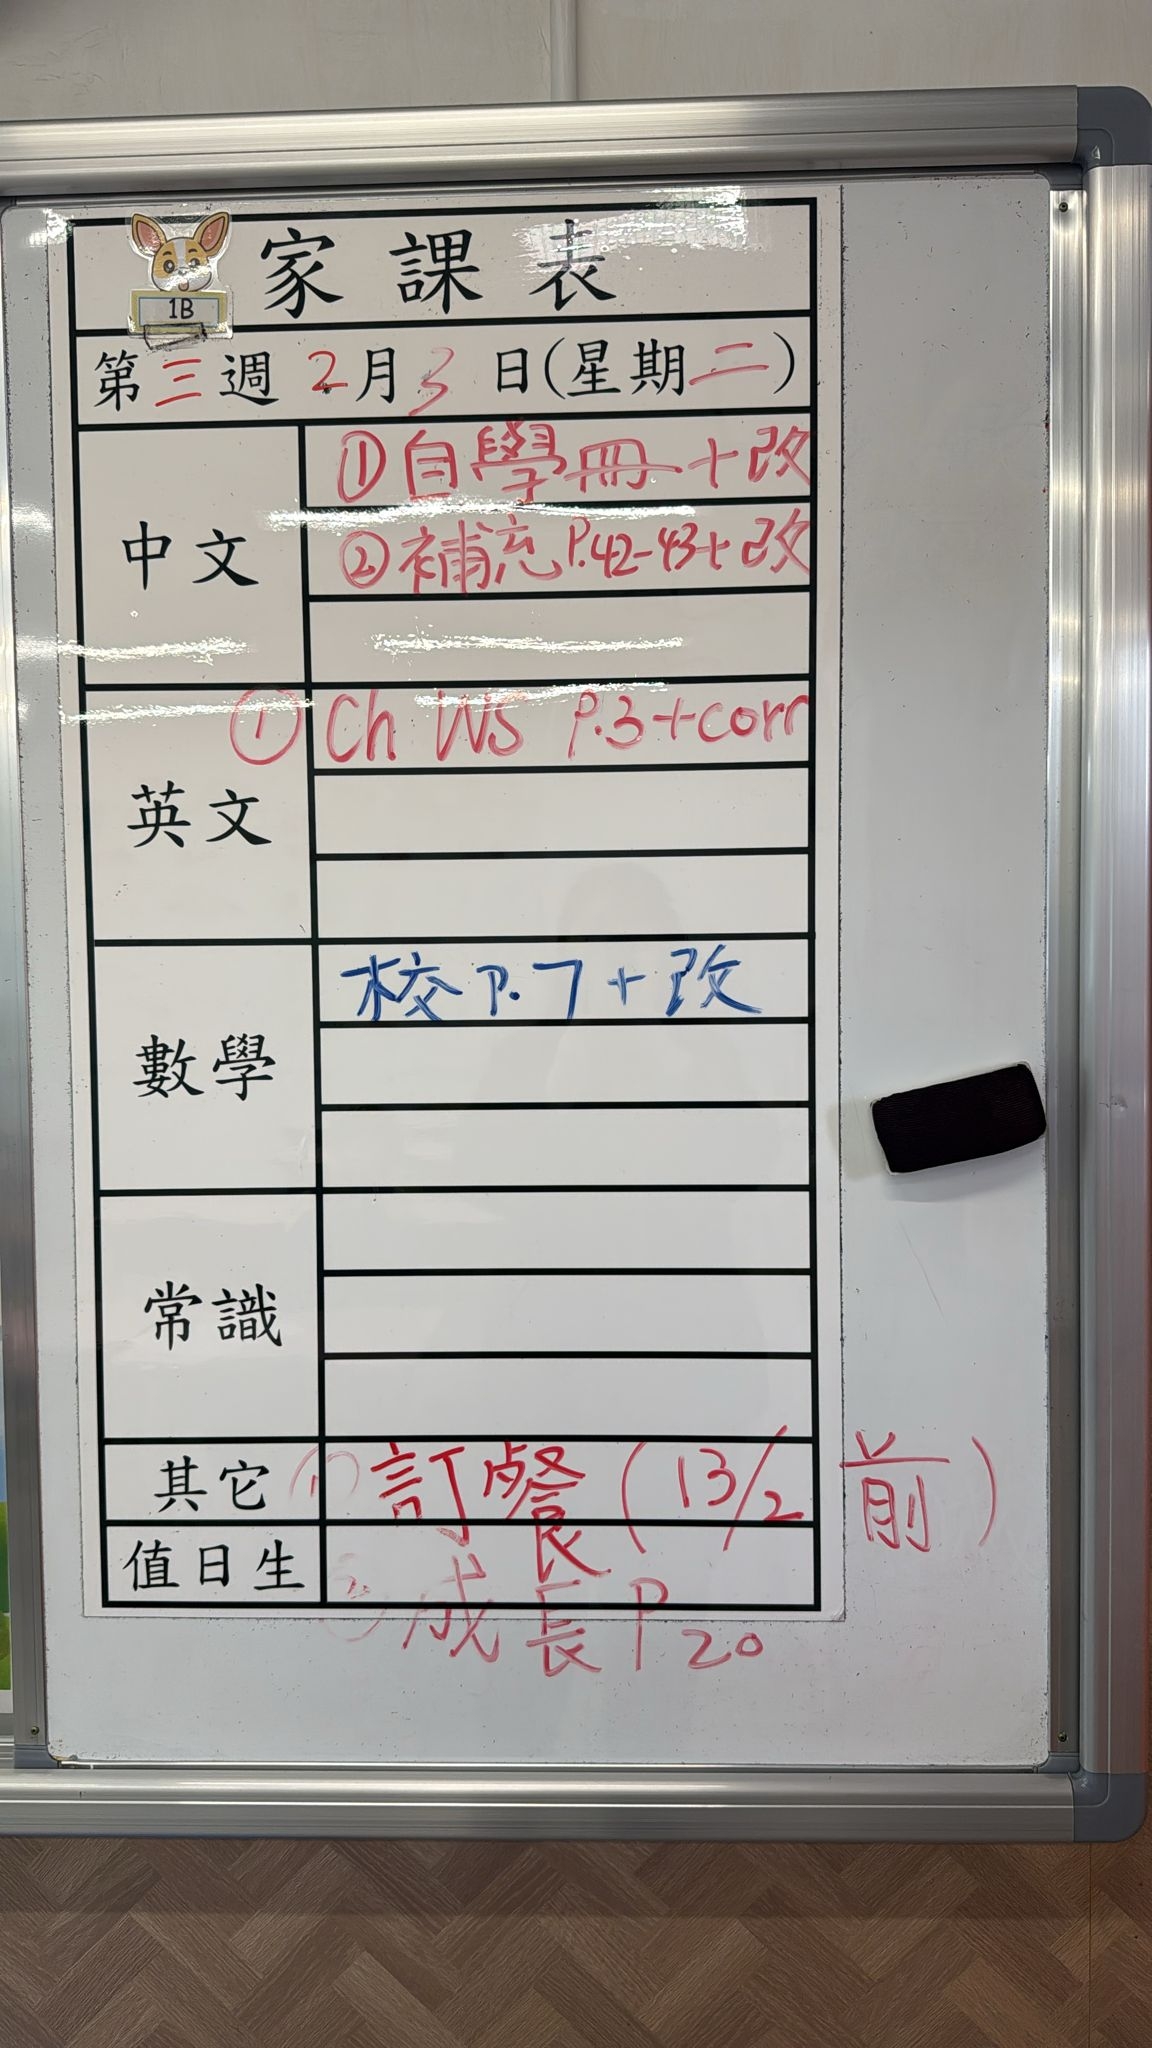 家課表
1B
第三週 2月3日(星期二)
中文
①自學冊+改
②補充P.42-43+改
英文
① Ch WS P.3+corr
數學
校P.7+改
常識
其它
① 訂餐(13/2前)
值日生
② 成長P20